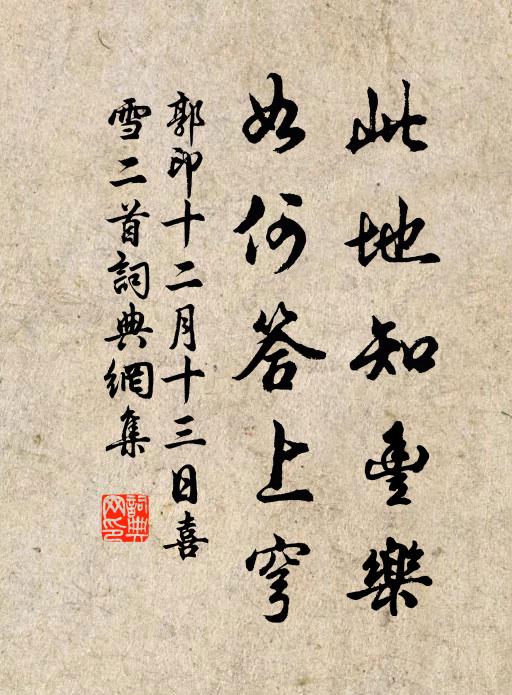 此地知豊樂
如何答上穹
郭印十二月十三日喜
雪二首詞典網集
詞典网印